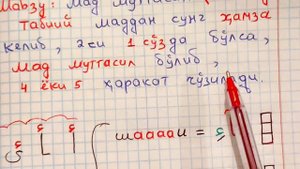 Мавзу: Мад муттасил
Табиий маддан сунг ҳамза
келиб, 2 си 1 сўзда бўлса,
мад муттасил бўлиб,
4 ёки 5 ҳаракат чўзилади.
шааааи =